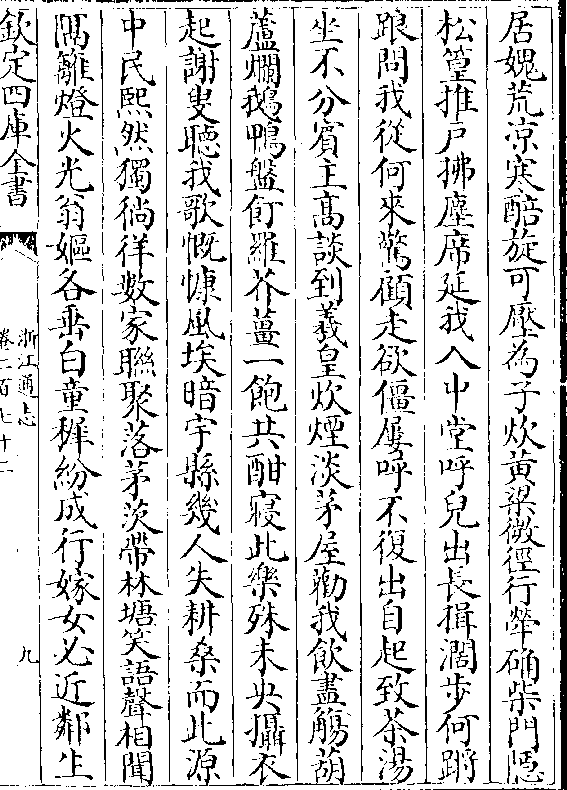 居媿荒凉寒醅旋可壓為子炊黄粱微徑行犖确柴門隠
松篁推户拂塵席延我入中堂呼兒出長揖濶步何蹡
踉問我從何來驚顧走欲僵屢呼不復出自起致茶湯
坐不分賓主髙談到羲皇炊煙淡茅屋勸我飲盡觴葫
蘆爛鵝鴨盤飣羅芥薑一飽共酣寢此樂殊未央攝衣
起謝叟聽我歌慨慷風埃暗宇縣幾人失耕桑而此源
中民熙然獨徜徉數家聯聚落茅茨帶林塘笑語聲相聞
隅籬燈火光翁嫗各垂白童穉紛成行嫁女必近鄰生
欽定四庫全書
浙江通志
卷二百七十二
九